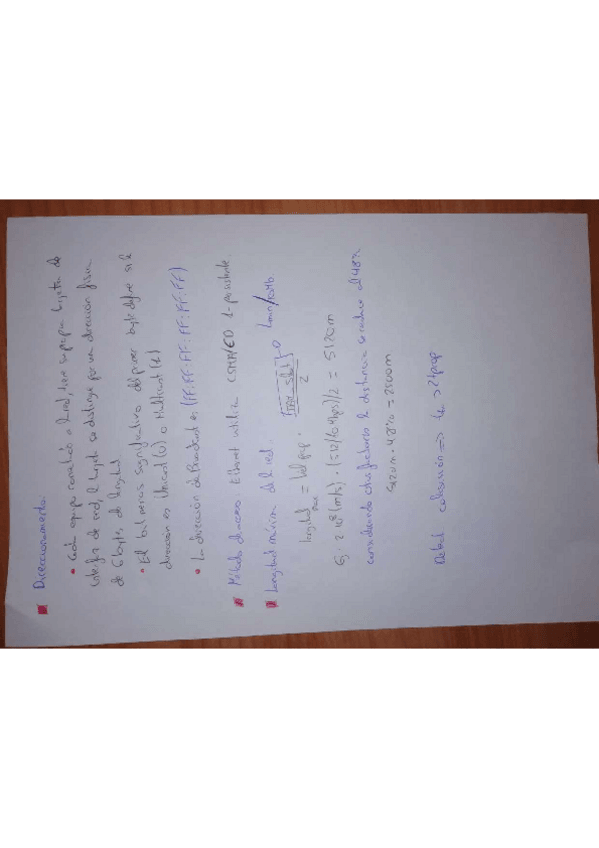 Direccionamiento.
• Cada equipo conectado a la red, tiene su propia tarjeta de
interfaz de red, la tarjeta se distingue por una dirección física
de 6 bytes, de longitud
• El bit menos significativo del primer byte define si la
dirección es Unicast (0) o Multicast (1)
• La dirección de Broadcast es (FF:FF:FF:FF:FF:FF)
Método de acceso Ethernet utiliza CSMA/CD 1-persistente.
Longitud máxima de la red.
longitud = Vel prop.
2
(512/10 Mbps)/2 = 5120m
considerando otros factores la distancia se reduce al 48%
5120m · 48% = 2500m
Detectar colisión => >2tprop